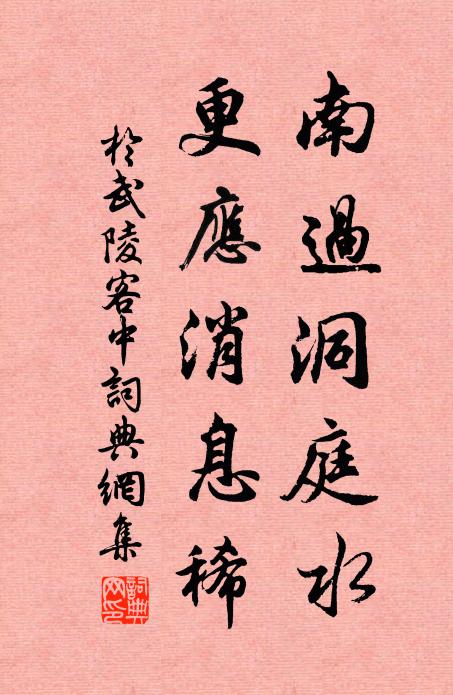 南過洞庭水
更應消息稀
於武陵客中詞典網集
詞典
網印